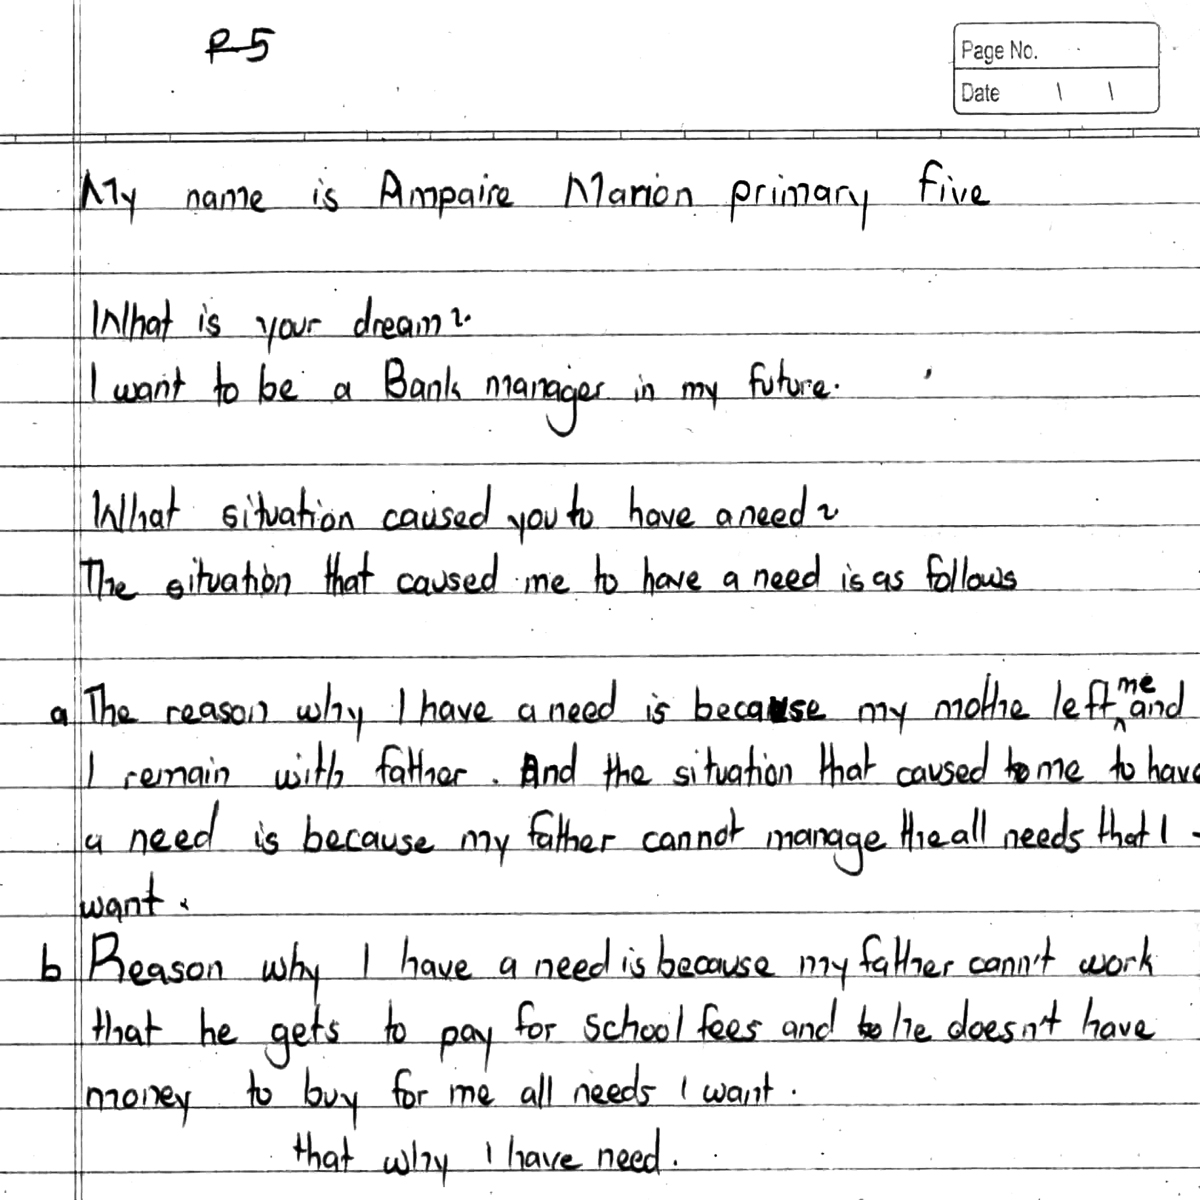 P5
Page No.
Date \ \
My name is Ampaire Marion primary five
What is your dream?
I want to be a Bank manager in my future.
What situation caused you to have a need?
The situation that caused me to have a need is as follows
a The reason why I have a need is because my mothe left me and
I remain with father. And the situation that caused to me to have
a need is because my father cannot manage the all needs that I
want.
b Reason why I have a need is because my father cann't work
that he gets to pay for school fees and to he doesn't have
money to buy for me all needs I want.
that why I have need.